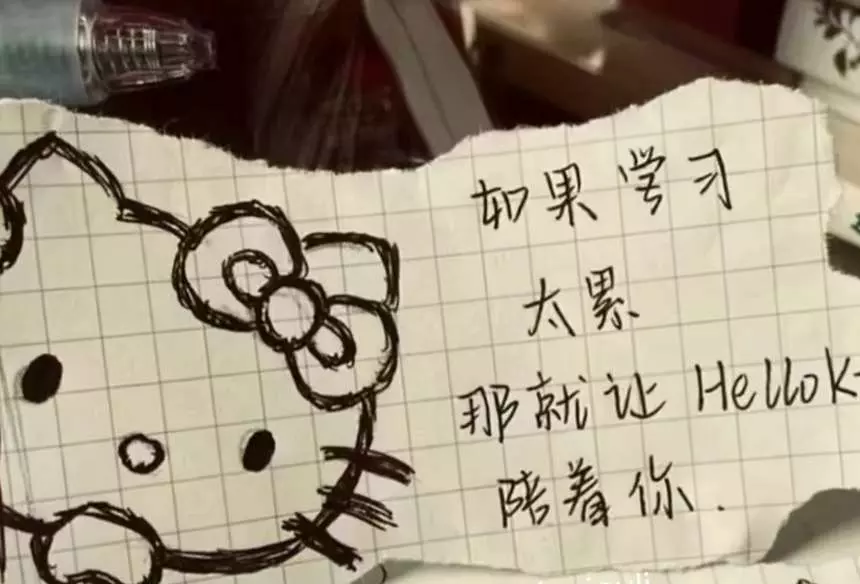 如果学习
太累
那就让 Hellok
陪着你.